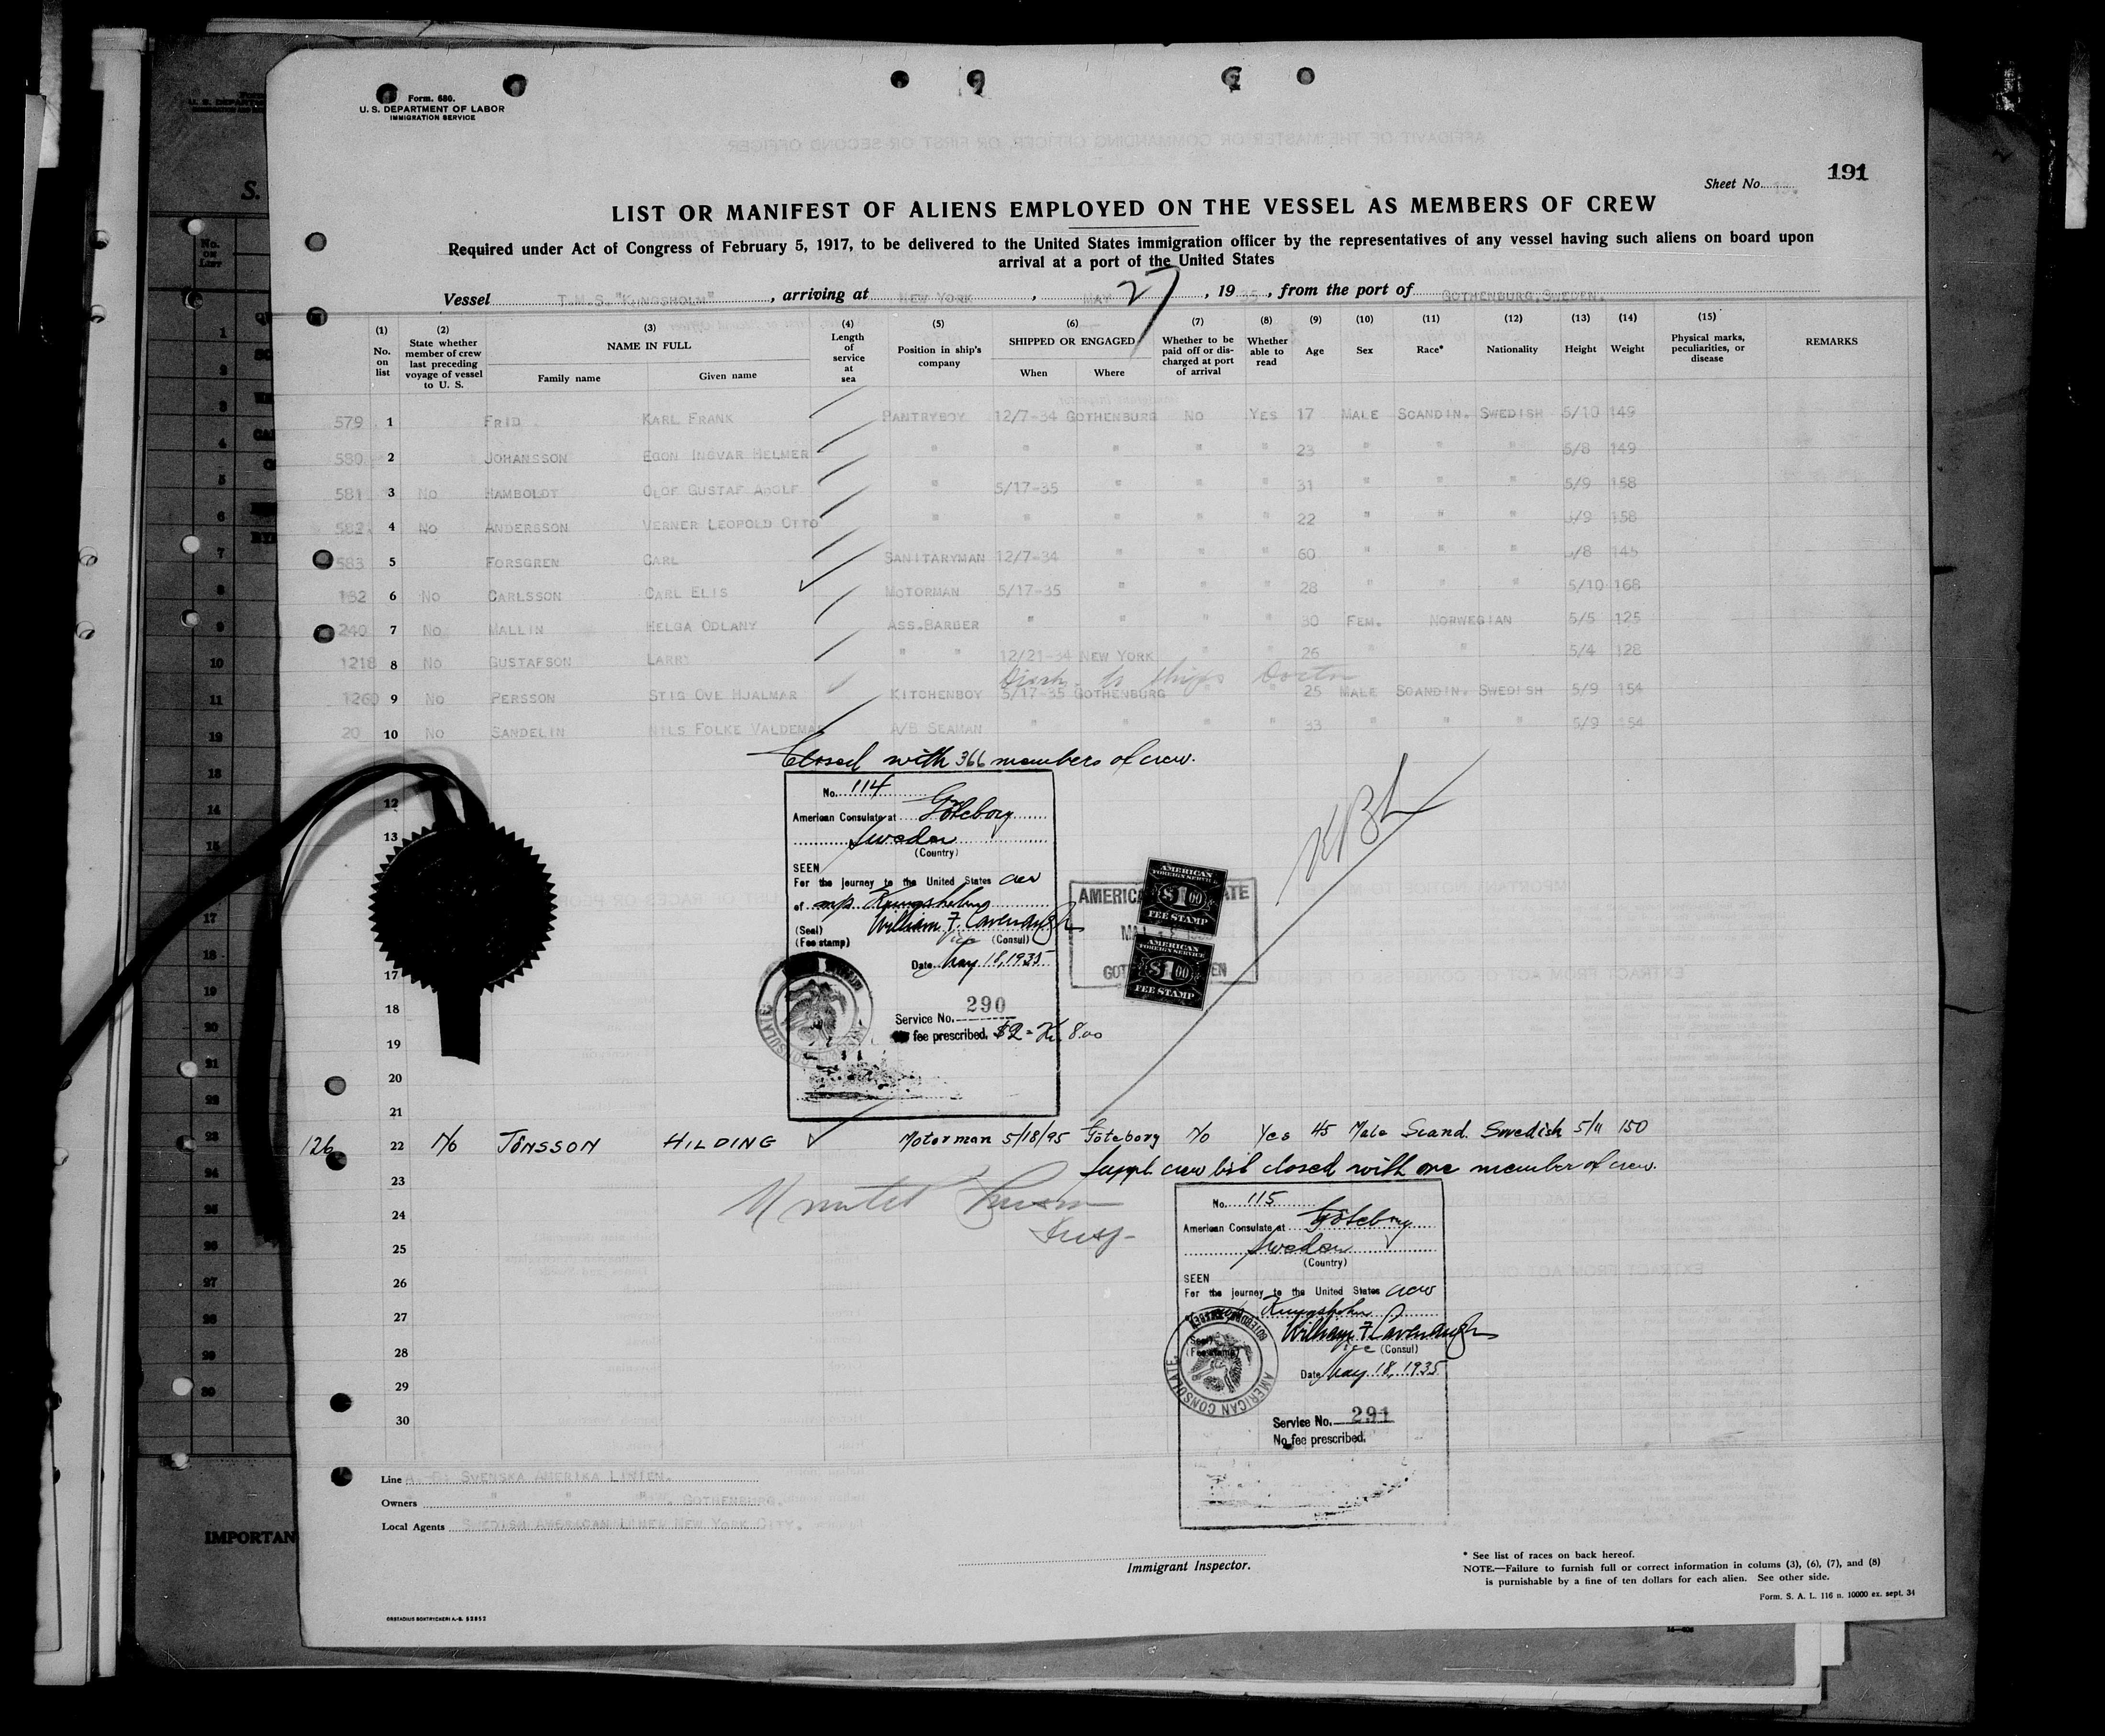 Form. 680.
U. S. DEPARTMENT OF LABOR
IMMIGRATION SERVICE
191
Sheet No.
LIST OR MANIFEST OF ALIENS EMPLOYED ON THE VESSEL AS MEMBERS OF CREW
Required under Act of Congress of February 5, 1917, to be delivered to the United States immigration officer by the representatives of any vessel having such aliens on board upon
arrival at a port of the United States
Vessel T.M.S. "KUNGSHOLM", arriving at NEW YORK, MAY 27, 1935, from the port of GOTHENBURG, SWEDEN.
(1) (2) (3) (4) (5) (6) (7) (8) (9) (10) (11) (12) (13) (14) (15)
No. on list
State whether member of crew last preceding voyage of vessel to U. S.
NAME IN FULL
Family name
Given name
Length of service at sea
Position in ship's company
SHIPPED OR ENGAGED
When
Where
Whether to be paid off or discharged at port of arrival
Whether able to read
Age
Sex
Race*
Nationality
Height
Weight
Physical marks, peculiarities, or disease
REMARKS
579 1 FRID KARL FRANK PANTRYBOY 12/7-34 GOTHENBURG NO YES 17 MALE SCANDIN. SWEDISH 5/10 149
580 2 JOHANSSON EGON INGVAR HELMER " " " " " 23 " " " 5/8 149
581 3 NO HAMBOLDT OLOF GUSTAF ADOLF " 5/17-35 " " " 31 " " " 5/9 158
582 4 NO ANDERSSON VERNER LEOPOLD OTTO " " " " " 22 " " " 5/9 158
583 5 FORSGREN CARL SANITARYMAN 12/7-34 " " " 60 " " " 5/8 145
132 6 NO CARLSSON CARL ELIS MOTORMAN 5/17-35 " " " 28 " " " 5/10 168
240 7 NO MALLIN HELGA ODLANY ASS.BARBER " " " " 30 FEM. NORWEGIAN 5/5 125
1218 8 NO GUSTAFSON LARRY " " 12/21-34 NEW YORK " " 26 " " 5/4 128
to ships Doctor
1260 9 NO PERSSON STIG OVE HJALMAR KITCHENBOY 5/17-35 GOTHENBURG " " 25 MALE SCANDIN. SWEDISH 5/9 154
20 10 NO SANDELIN NILS FOLKE VALDEMAR A/B SEAMAN " " " " 33 " " " 5/9 154
Closed with 366 members of crew.
No. 114
American Consulate at Göteborg
Sweden
(Country)
SEEN
For the journey to the United States crew
of m/s Kungsholm
William F. Cavenaugh
(Seal)
(Fee stamp)
Vice (Consul)
Date May 18, 1935
Service No. 290
fee prescribed. $2 = Kr. 8.00
AMERICAN FOREIGN SERVICE
$1.00
FEE STAMP
AMERICAN FOREIGN SERVICE
$1.00
FEE STAMP
12
13
17
18
19
20
21
126 22 No JÖNSSON HILDING Motorman 5/18/95 Göteborg No Yes 45 Male Scand. Swedish 5/11 150
Suppl. crew list closed with one member of crew.
23
24
25
26
27
28
29
30
No. 115
American Consulate at Göteborg
Sweden
(Country)
SEEN
For the journey to the United States crew
Kungsholm
William F. Cavenaugh
(Seal)
(Fee stamp)
Vice (Consul)
Date May 18, 1935
AMERICAN CONSULATE
Service No. 291
No fee prescribed.
Line A.-B. SVENSKA AMERIKA LINIEN.
Owners " " " . GOTHENBURG.
Local Agents SWEDISH AMERICAN LINE, NEW YORK CITY.
Immigrant Inspector.
* See list of races on back hereof.
NOTE.—Failure to furnish full or correct information in colums (3), (6), (7), and (8)
is purnishable by a fine of ten dollars for each alien. See other side.
Form. S. A. L. 116 n. 10000 ex. sept. 34
ORSTADIUS BOKTRYCKERI A.-B. 52852
IMPORTAN